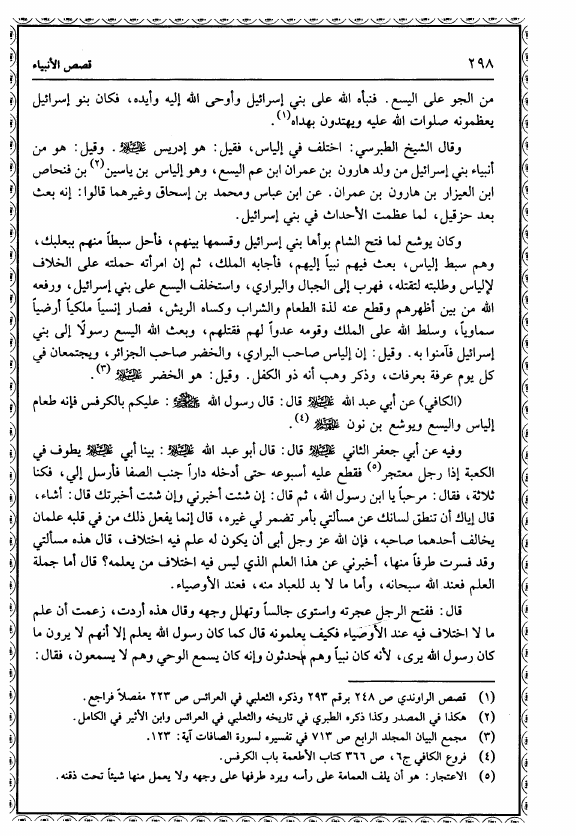 ٢٩٨
قصص الأنبياء
من الجو على اليسع. فنبأه الله على بني إسرائيل وأوحى الله إليه وأيده، فكان بنو إسرائيل
يعظمونه صلوات الله عليه ويهتدون بهداه(١).
وقال الشيخ الطبرسي: اختلف في إلياس، فقيل: هو إدريس ﵇. وقيل: هو من
أنبياء بني إسرائيل من ولد هارون بن عمران ابن عم اليسع، وهو إلياس بن ياسين(٢) بن فنحاص
ابن العيزار بن هارون بن عمران. عن ابن عباس ومحمد بن إسحاق وغيرهما قالوا: إنه بعث
بعد حزقيل، لما عظمت الأحداث في بني إسرائيل.
وكان يوشع لما فتح الشام بوأها بني إسرائيل وقسمها بينهم، فأحل سبطاً منهم ببعلبك،
وهم سبط إلياس، بعث فيهم نبياً إليهم، فأجابه الملك، ثم إن امرأته حملته على الخلاف
لإلياس وطلبته لتقتله، فهرب إلى الجبال والبراري، واستخلف اليسع على بني إسرائيل، ورفعه
الله من بين أظهرهم وقطع عنه لذة الطعام والشراب وكساه الريش، فصار إنسياً ملكياً أرضياً
سماوياً، وسلط الله على الملك وقومه عدواً لهم فقتلهم، وبعث الله اليسع رسولًا إلى بني
إسرائيل فآمنوا به. وقيل: إن إلياس صاحب البراري، والخضر صاحب الجزائر، ويجتمعان في
كل يوم عرفة بعرفات، وذكر وهب أنه ذو الكفل. وقيل: هو الخضر ﵇(٣).
(الكافي) عن أبي عبد الله ﵇ قال: قال رسول الله ﷺ: عليكم بالكرفس فإنه طعام
إلياس واليسع ويوشع بن نون ﵈(٤).
وفيه عن أبي جعفر الثاني ﵇ قال: قال أبو عبد الله ﵇: بينا أبي ﵇ يطوف في
الكعبة إذا رجل معتجر(٥) فقطع عليه أسبوعه حتى أدخله داراً جنب الصفا فأرسل إلي، فكنا
ثلاثة، فقال: مرحباً يا ابن رسول الله، ثم قال: إن شئت أخبرني وإن شئت أخبرتك قال: أشاء،
قال إياك أن تنطق لسانك عن مسألتي بأمر تضمر لي غيره، قال إنما يفعل ذلك من في قلبه علمان
يخالف أحدهما صاحبه، فإن الله عز وجل أبى أن يكون له علم فيه اختلاف، قال هذه مسألتي
وقد فسرت طرفاً منها، أخبرني عن هذا العلم الذي ليس فيه اختلاف من يعلمه؟ قال أما جملة
العلم فعند الله سبحانه، وأما ما لا بد للعباد منه، فعند الأوصياء.
قال: ففتح الرجل عجرته واستوى جالساً وتهلل وجهه وقال هذه أردت، زعمت أن علم
ما لا اختلاف فيه عند الأوصياء فكيف يعلمونه قال كما كان رسول الله يعلم إلا أنهم لا يرون ما
كان رسول الله يرى، لأنه كان نبياً وهم محدثون وإنه كان يسمع الوحي وهم لا يسمعون، فقال:
(١) قصص الراوندي ص ٢٤٨ برقم ٢٩٣ وذكره الثعلبي في العرائس ص ٢٢٣ مفصلاً فراجع.
(٢) هكذا في المصدر وكذا ذكره الطبري في تاريخه والثعلبي في العرائس وابن الأثير في الكامل.
(٣) مجمع البيان المجلد الرابع ص ٧١٣ في تفسيره لسورة الصافات آية: ١٢٣.
(٤) فروع الكافي ج٦، ص ٣٦٦ كتاب الأطعمة باب الكرفس.
(٥) الاعتجار: هو أن يلف العمامة على رأسه ويرد طرفها على وجهه ولا يعمل منها شيئاً تحت ذقنه.